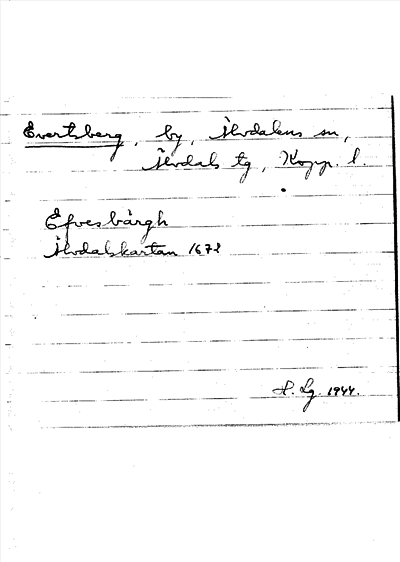 Evertsberg, by, Älvdalens sn,
Älvdals tg, Kopp. l.
Efvesbärgh
Älvdalskartan 1672
H. Lg. 1944.